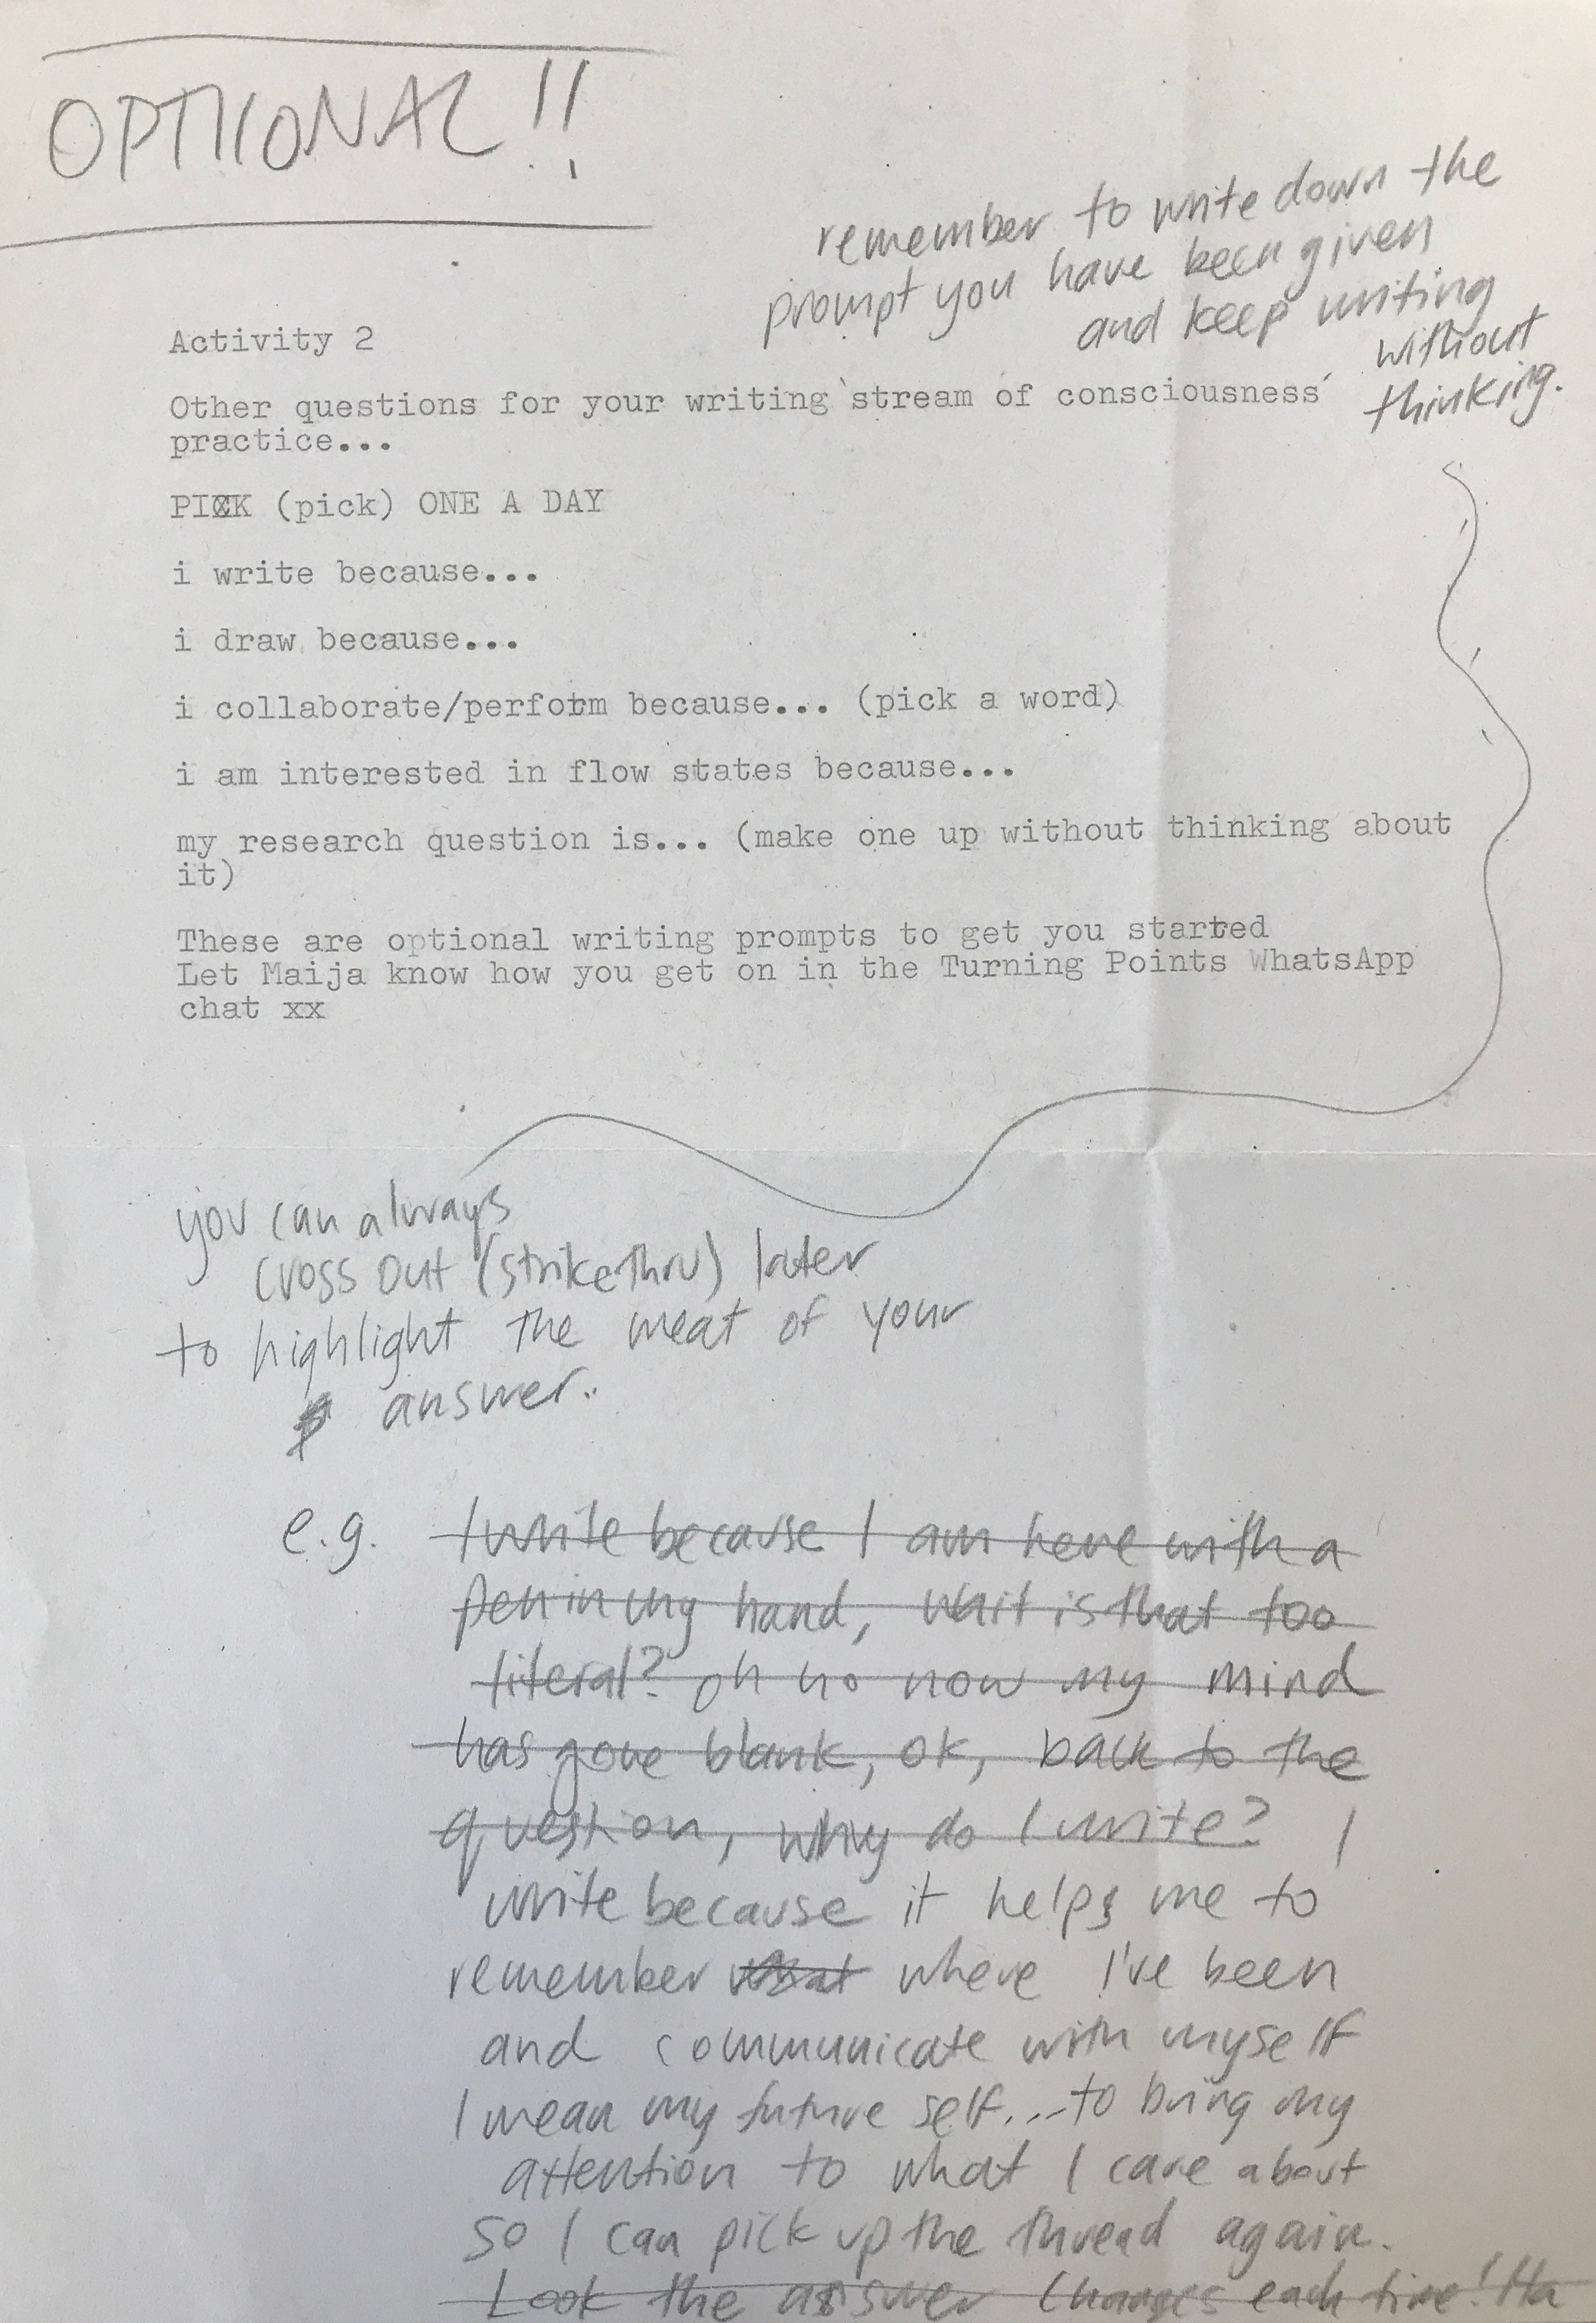 OPTIONAL!!
remember to write down the
prompt you have been given
and keep writing
without
thinking.
Activity 2
Other questions for your writing 'stream of consciousness'
practice...
PICK (pick) ONE A DAY
i write because...
i draw because...
i collaborate/perform because... (pick a word)
i am interested in flow states because...
my research question is... (make one up without thinking about
it)
These are optional writing prompts to get you started
Let Maija know how you get on in the Turning Points WhatsApp
chat xx
you can always
cross out (strikethru) later
to highlight the meat of your
answer..
e.g. I write because I am here with a
pen in my hand, wait is that too
literal? oh no now my mind
has gone blank, ok, back to the
question, why do I write? I
write because it helps me to
remember what where I've been
and communicate with myself
I mean my future self... to bring my
attention to what I care about
so I can pick up the thread again.
Look the answer changes each time! Ha